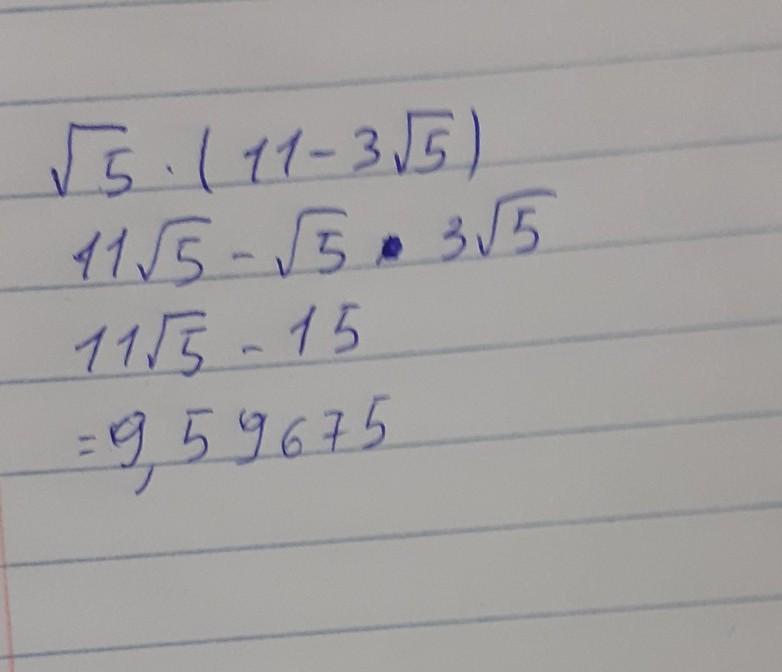 √5 · ( 11 - 3√5 )
11√5 - √5 · 3√5
11√5 - 15
= 9,59675